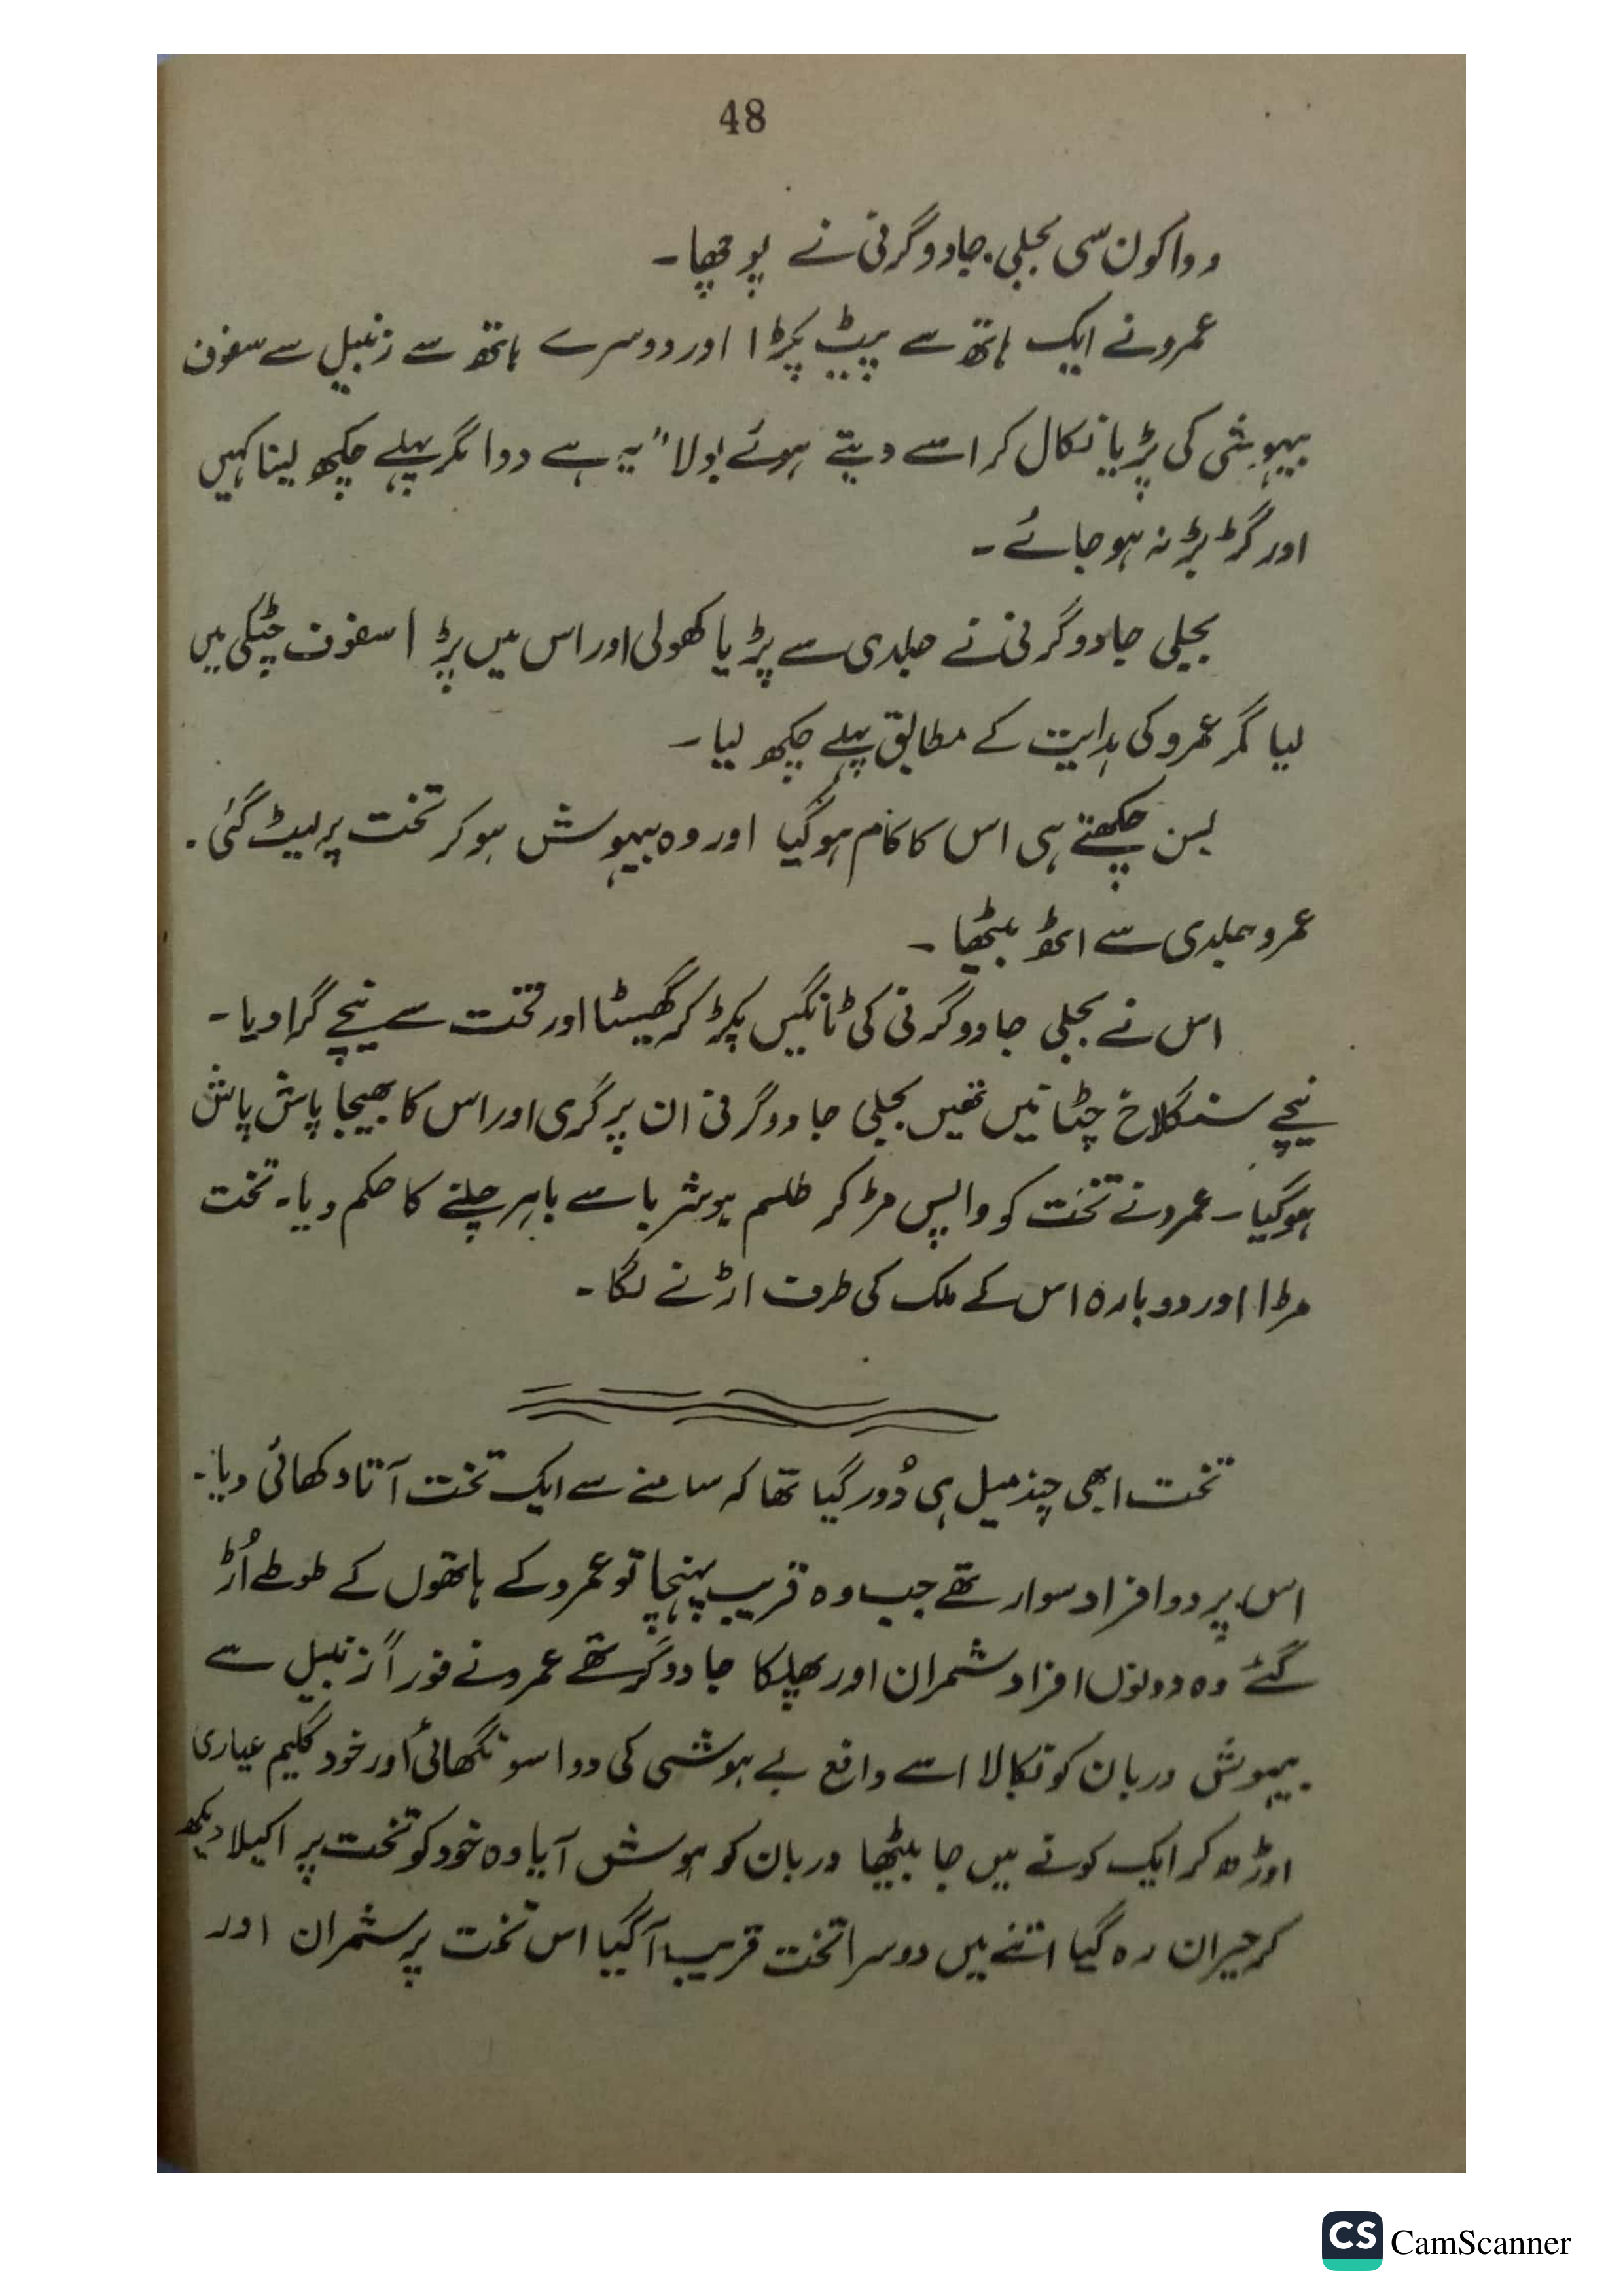 48
دوا کون سی بجلی جادوگرنی نے پوچھا۔
عمرو نے ایک ہاتھ سے پیٹ پکڑا اور دوسرے ہاتھ سے زنبیل سے سفوف
بیہوشی کی پڑیا نکال کر اسے دیتے ہوئے بولا "یہ ہے دوا مگر پہلے چکھ لینا کہیں
اور گڑ بڑ نہ ہو جائے۔
بجلی جادوگرنی نے جلدی سے پڑیا کھولی اور اس میں پڑا سفوف چٹکی میں
لیا مگر عمرو کی ہدایت کے مطابق پہلے چکھ لیا۔
بس چکھتے ہی اس کا کام ہو گیا اور وہ بیہوش ہو کر تخت پر لیٹ گئی۔
عمرو جلدی سے اٹھ بیٹھا۔
اس نے بجلی جادوگرنی کی ٹانگیں پکڑ کر گھسیٹا اور تخت سے نیچے گرا دیا۔
نیچے سنگلاخ چٹانیں تھیں بجلی جادوگرنی ان پر گری اور اس کا بھیجا پاش پاش
ہو گیا۔ عمرو نے تخت کو واپس مڑ کر طلسم ہوشربا سے باہر چلنے کا حکم دیا۔ تخت
مڑا اور دوبارہ اس کے ملک کی طرف اڑنے لگا۔
تخت ابھی چند میل ہی دُور گیا تھا کہ سامنے سے ایک تخت آتا دکھائی دیا۔
اس پر دو افراد سوار تھے جب وہ قریب پہنچا تو عمرو کے ہاتھوں کے طوطے اُڑ
گئے وہ دونوں افراد شمران اور پھلکا جادوگر تھے عمرو نے فوراً زنبیل سے
بیہوش دربان کو نکالا اسے دافع بے ہوشی کی دوا سونگھائی اور خود گلیم عیاری
اوڑھ کر ایک کونے میں جا بیٹھا دربان کو ہوش آیا وہ خود کو تخت پر اکیلا دیکھ
کر حیران رہ گیا اتنے میں دوسرا تخت قریب آ گیا اس تخت پر شمران اور
CS CamScanner